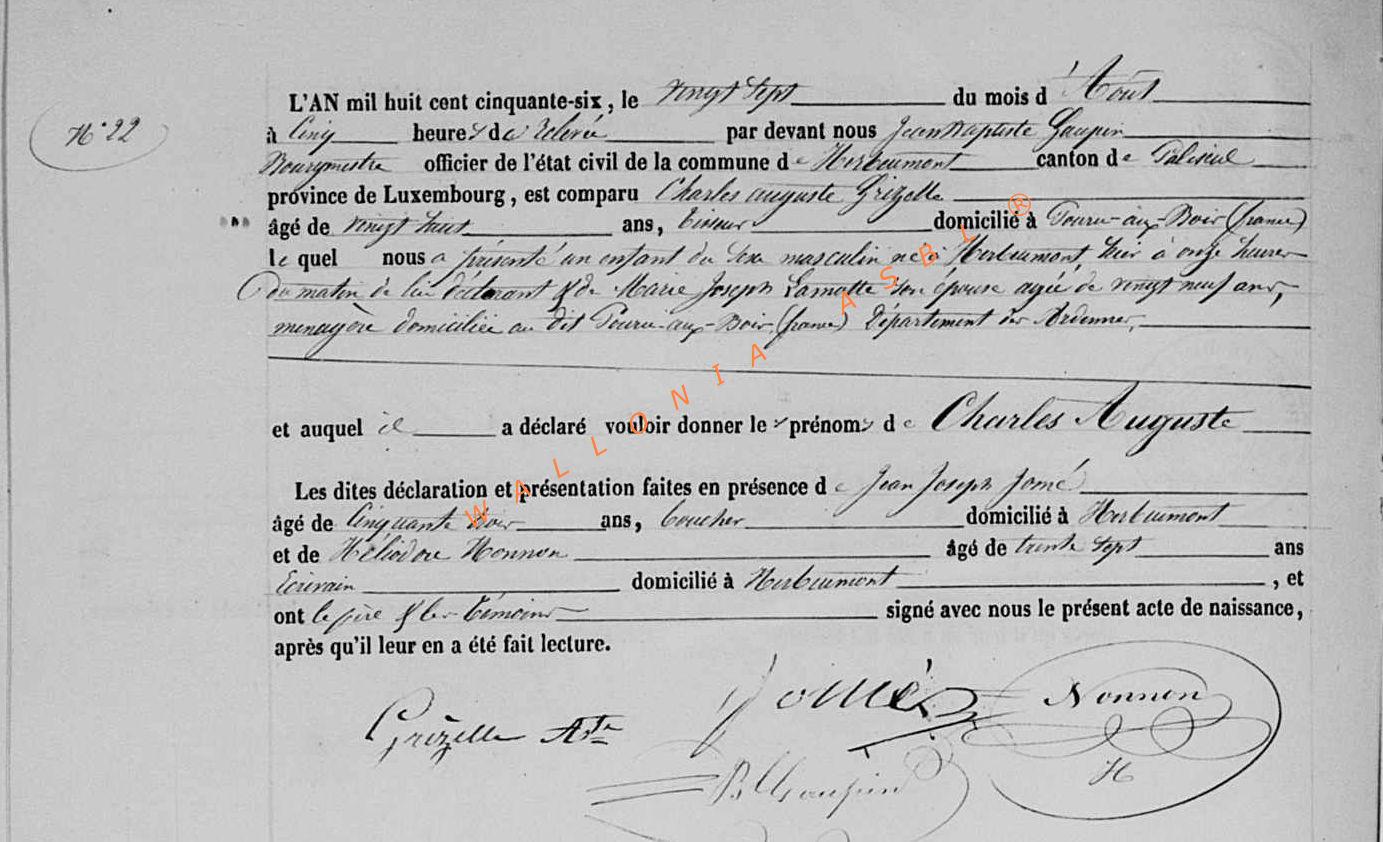 N° 22
L'AN mil huit cent cinquante-six, le vingt sept du mois d'Août
à Cinq heures de relevée par devant nous Jean Baptiste Gaupin
Bourgmestre officier de l'état civil de la commune de Herbeumont canton de Paliseul
province de Luxembourg, est comparu Charles auguste Grizelle
âgé de vingt huit ans, tisseur domicilié à Pouru-aux-Bois (france)
lequel nous a présenté un enfant du sexe masculin né à Herbeumont hier à onze heures
du matin de lui déclarant & de Marie Joseph Lamotte son épouse agée de vingt neuf ans,
menagère domiciliée au dit Pouru-aux-Bois (france) Département des Ardennes,
et auquel il a déclaré vouloir donner les prénoms de Charles Auguste
Les dites déclaration et présentation faites en présence de Jean Joseph Jomé
âgé de Cinquante trois ans, domicilié à Herbeumont
et de Héliodore Nonnon âgé de trente sept ans
Ecrivain domicilié à Herbeumont, et
ont le père & les témoins signé avec nous le présent acte de naissance,
après qu'il leur en a été fait lecture.
Jomé Nonnon
Grizelle Aste H
JB Gaupin
WALLONIA ASBL ®